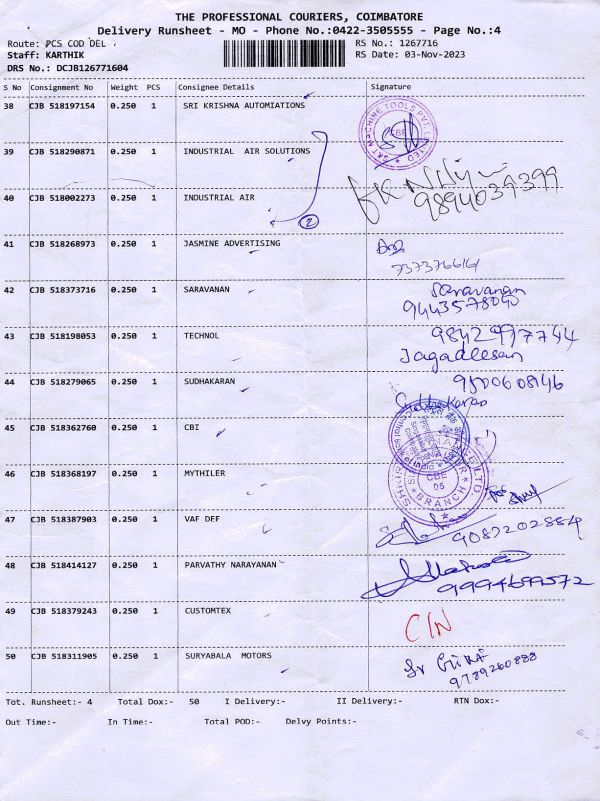 THE PROFESSIONAL COURIERS, COIMBATORE
Delivery Runsheet - MO - Phone No.:0422-3505555 - Page No.:4
Route: PCS COD DEL RS No.: 1267716
Staff: KARTHIK RS Date: 03-Nov-2023
DRS No.: DCJB126771604
S No Consignment No Weight PCS Consignee Details Signature
38 CJB 518197154 0.250 1 SRI KRISHNA AUTOMIATIONS
SAT MACHINE TOOLS PVT. LIMITED CBE
39 CJB 518290871 0.250 1 INDUSTRIAL AIR SOLUTIONS
9894039399
40 CJB 518002273 0.250 1 INDUSTRIAL AIR
2
41 CJB 518268973 0.250 1 JASMINE ADVERTISING
42 CJB 518373716 0.250 1 SARAVANAN Saravanan
9443578040
43 CJB 518198053 0.250 1 TECHNOL 9842997744
Jagadeesan
44 CJB 518279065 0.250 1 SUDHAKARAN 9500608146
Sudhakaran
45 CJB 518362760 0.250 1 CBI
46 CJB 518368197 0.250 1 MYTHILER
CBE
05
BRANCH
47 CJB 518387903 0.250 1 VAF DEF
9087202884
48 CJB 518414127 1 0.250 PARVATHY NARAYANAN
9994699572
49 CJB 518379243 0.250 1 CUSTOMTEX C/N
50 CJB 518311905 0.250 1 SURYABALA MOTORS
9789260888
Tot. Runsheet:- 4 Total Dox:- 50 I Delivery:- II Delivery:- RTN Dox:-
Out Time:- In Time:- Total POD:- Delvy Points:-